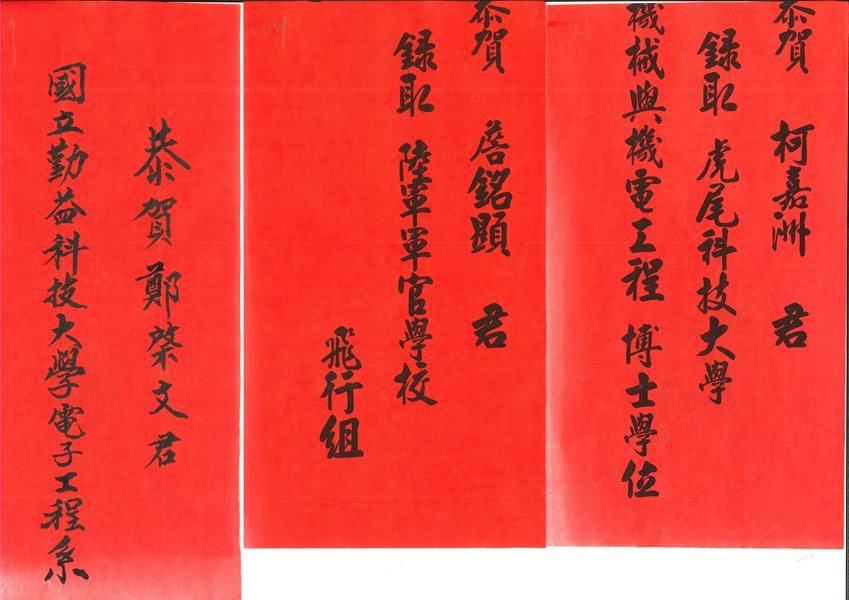 恭賀 柯嘉洲 君
錄取 虎尾科技大學
機械與機電工程 博士學位
恭賀 詹銘顯 君
錄取 陸軍軍官學校
飛行組
恭賀鄭榮文君
國立勤益科技大學電子工程系